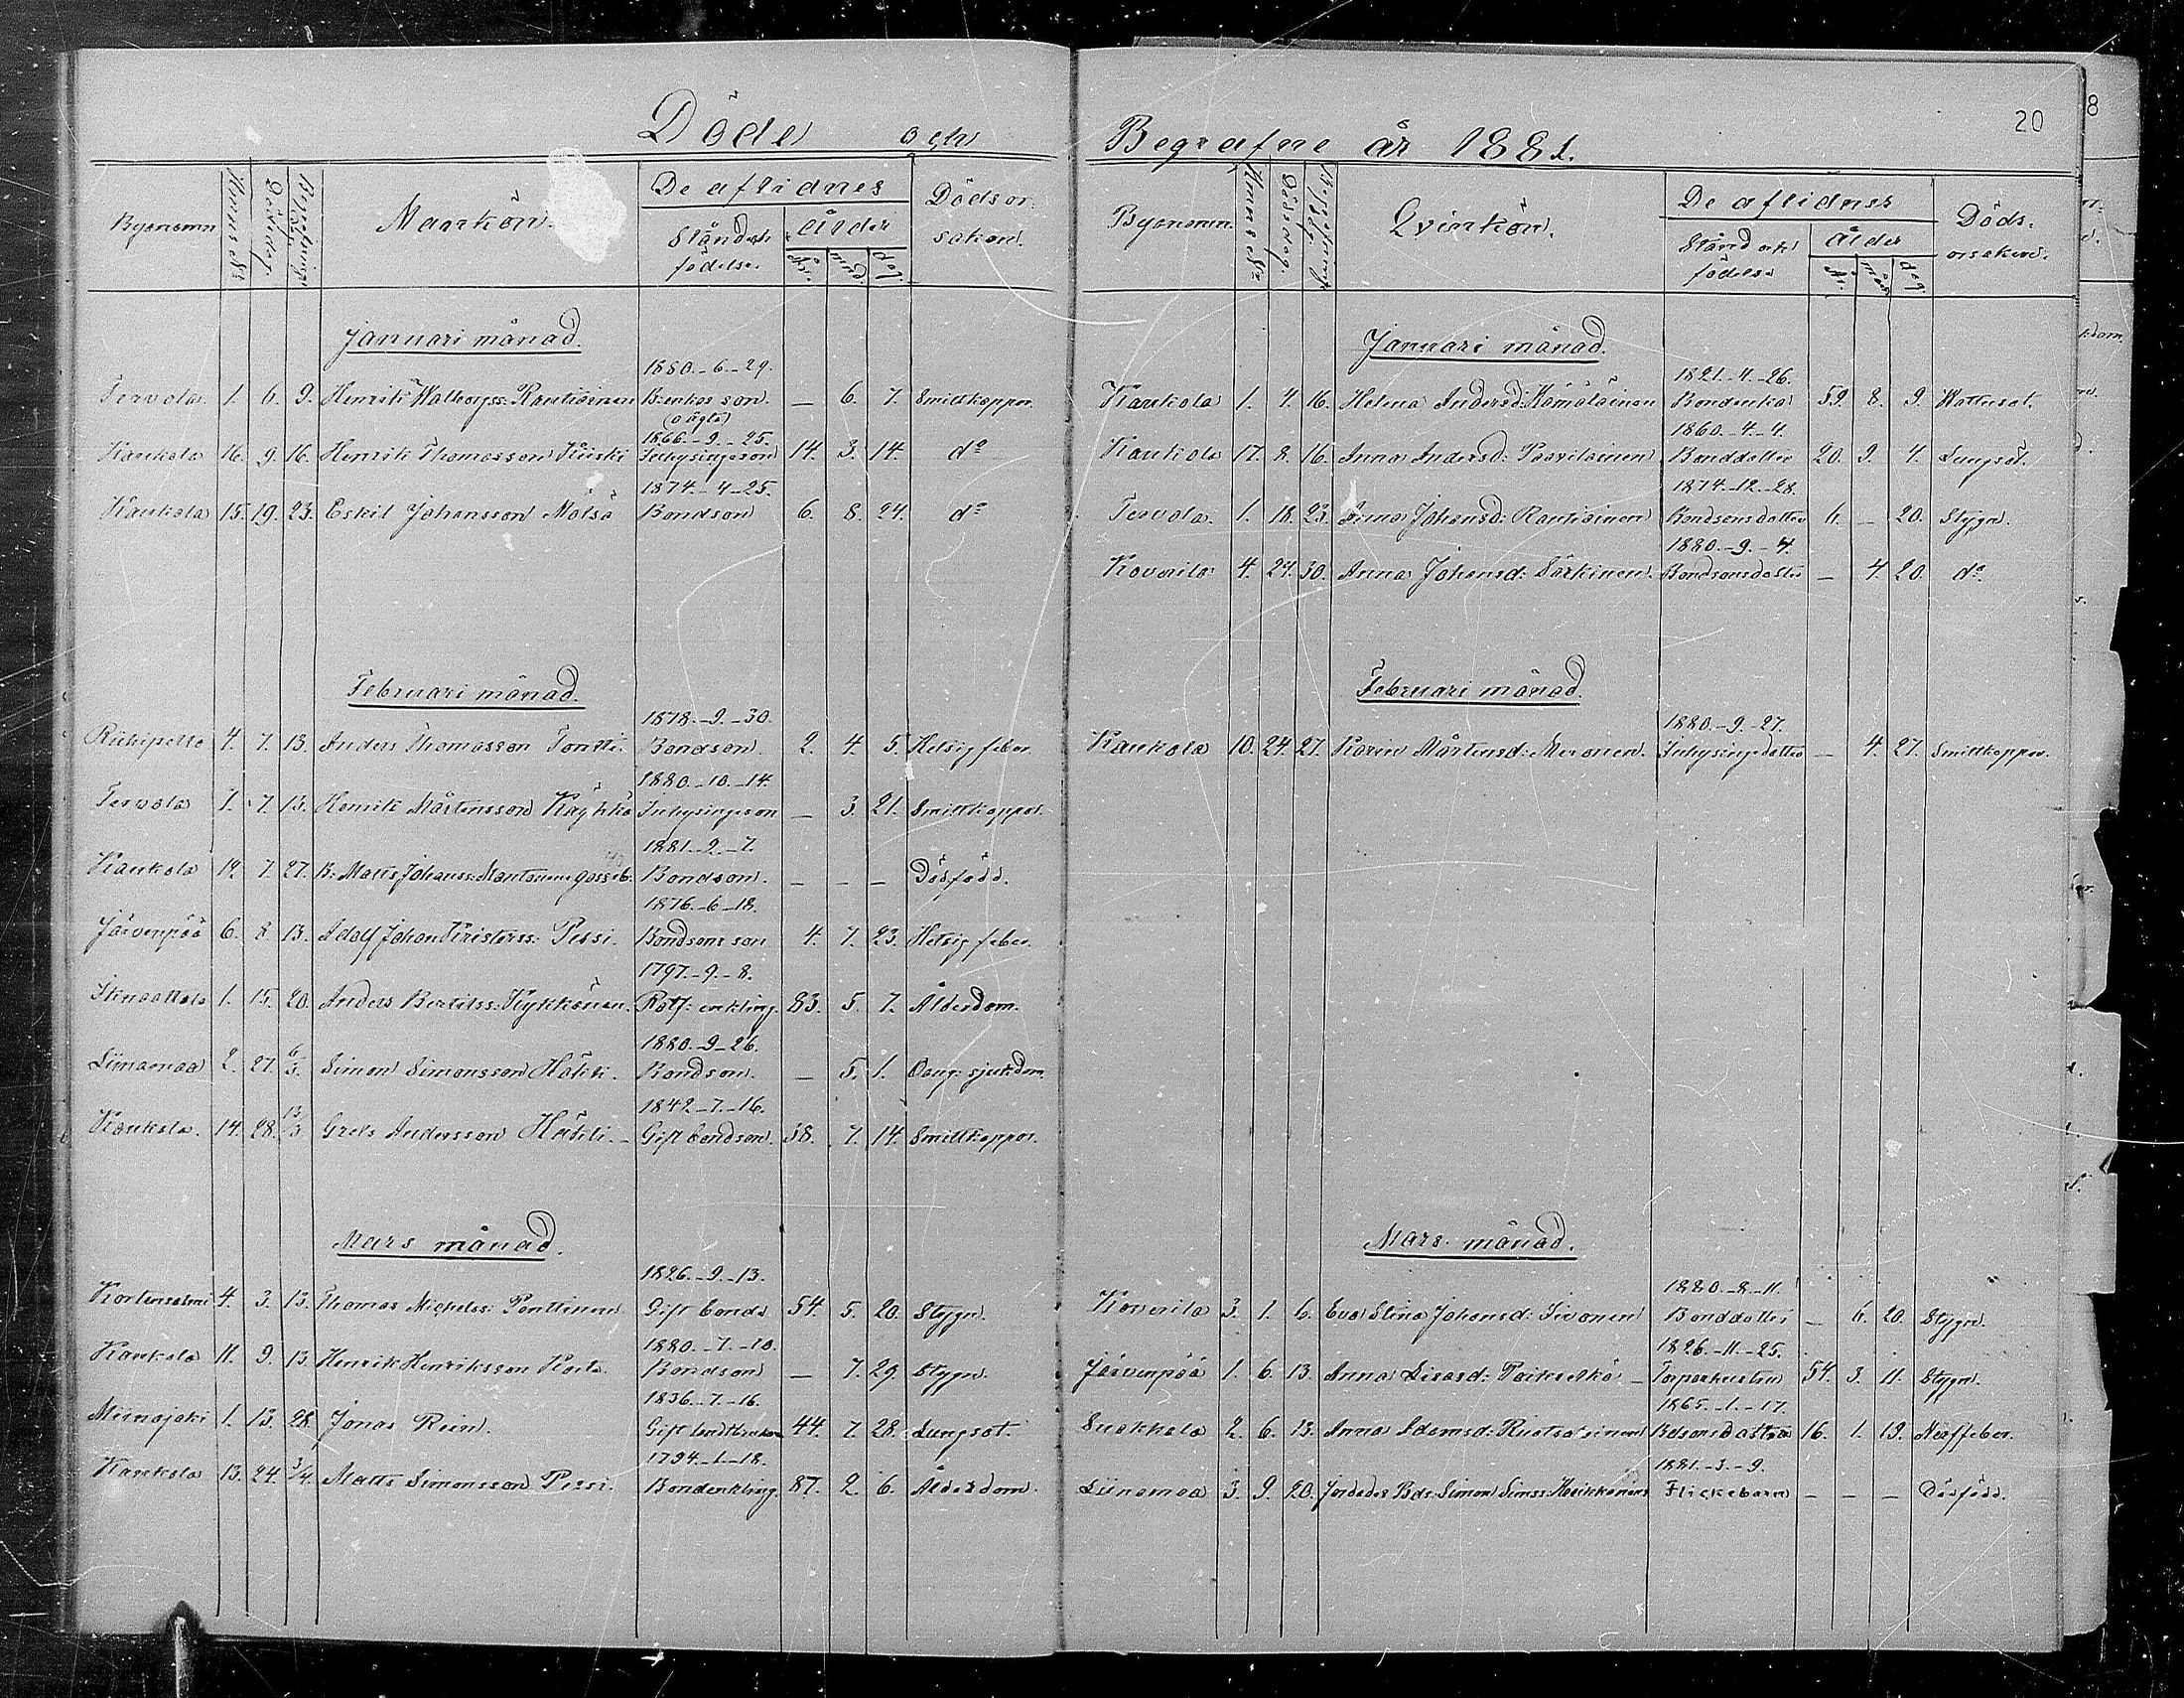 Döde och
Byanamn Mankön. De aflidnes Dödsor-
Stånd och födelse. Ålder saken.
Januari månad.
1880.-6.-29.
Tervola. 1. 6. 9. Henrik Walborgss: Rautiainen B:enkas son. — 6. 7. Smittkoppor.
(oägta)
1866.-9.-25.
Kaukola 16. 9. 16. Henrik Thomasson Kiiski Inhysingeson 14. 3. 14. dº
1874.-4-25.
Kaukola 15. 19. 23. Eskil Johansson Mälsä Bondson 6. 8. 24. dº
Februari månad.
1878.-9.-30.
Riihipelto 4. 7. 13. Anders Thomasson Tontti. Bondson. 2. 4. 5. Hetsig feber.
1880.-10.-14.
Tervola 7. 7. 13. Henrik Mårtensson Käyhkö Inhysingeson — 3. 21. Smittkoppor.
1881.-2.-7.
Kaukola 19. 7. 27. B: Matts Johanss: Mantonens gosseb: Bondson. — — — Dödfödd.
1876.-6-18.
Järvenpää 6. 8. 13. Adolf Johan Kristerss: Pessi. Bondsons son 4. 7. 23. Hetsig feber.
1797.-9.-8.
1. 15. 20. Anders Bertilss: Kykkänen. Rotf: enkling. 83. 5. 7. Ålderdom.
1880.-9-26.
Liinamaa 2. 27. 6/3. Simon Simonsson Häkli. Bondson. — 5. 1. Oang: sjukdom.
1842.-7.-16.
Kaukola. 14. 28. 13/3 Grels Andersson Häkli. Gift bondson. 38. 7. 14. Smittkoppor.
Mars månad.
1826.-9.-13.
Kortensalmi 4. 3. 13. Thomas Michelss: Penttinen Gift bonde 54. 5. 20. Stygn.
1880.-7.-10.
Kaukola 11. 9. 13. Henrik Henriksson Korte. Bondson — 7. 29. Stygn.
1836.-7.-16.
Miinajoki 1. 13. 28 Jonas Rein. Gift landtbrukare 44. 7. 28. Lungsot.
1794.-1.-18.
Kaukola 13. 24. 3/4. Matts Simonsson Pessi. Bondenkling. 87. 2. 6. Ålderdom.
Begrafne år 1881.
20
Byanamn. Qvinkön. De aflidnes Döds-
Stånd och födelse Ålder orsaken.
Januari månad.
1821.-4.-26.
Kaukola 1. 4. 16. Helena Andersd: Hämäläinen Bondenka 59. 8. 9. Wattusot.
1860.-4.-4.
Kaukola 17. 8. 16. Anna Andersd: Paavilainen Bonddotter 20. 9. 4. Lungsot.
1874.-12.-28.
Tervola. 1. 18. 23. Anna Johansd: Rautiainen Bondsonsdotter 6. — 20. Stygn.
1880.-9.-4.
Koverila 4. 24. 30. Anna Johansd: Särkinen. Bondsonsdotter — 4. 20. dº.
Februari månad.
1880.-9.-27.
Kaukola 10. 24. 27. Karin Mårtensd: Meronen. Inhysingedotter — 4. 27. Smittkoppor.
Mars månad.
1880.-8.-11.
Koverila 3. 1. 6. Eva Stina Johansd: Sivonen Bonddotter — 6. 20. Stygn.
1826.-11.-25.
Järvenpää 1. 6. 13. Anna Lisasd: Torparhustru 54. 3. 11. Stygn.
1865.-1.-17.
Suokkola 2. 6. 13. Anna Adamsd: Ruotsalainen Bdsonsdotter 16. 1. 19. Nerffeber.
1881.-3.-9.
Liinamaa 3. 9. 20. Jordades Bds: Simon Simss: Heikkonens Flickebarn — — — Dödfödd.